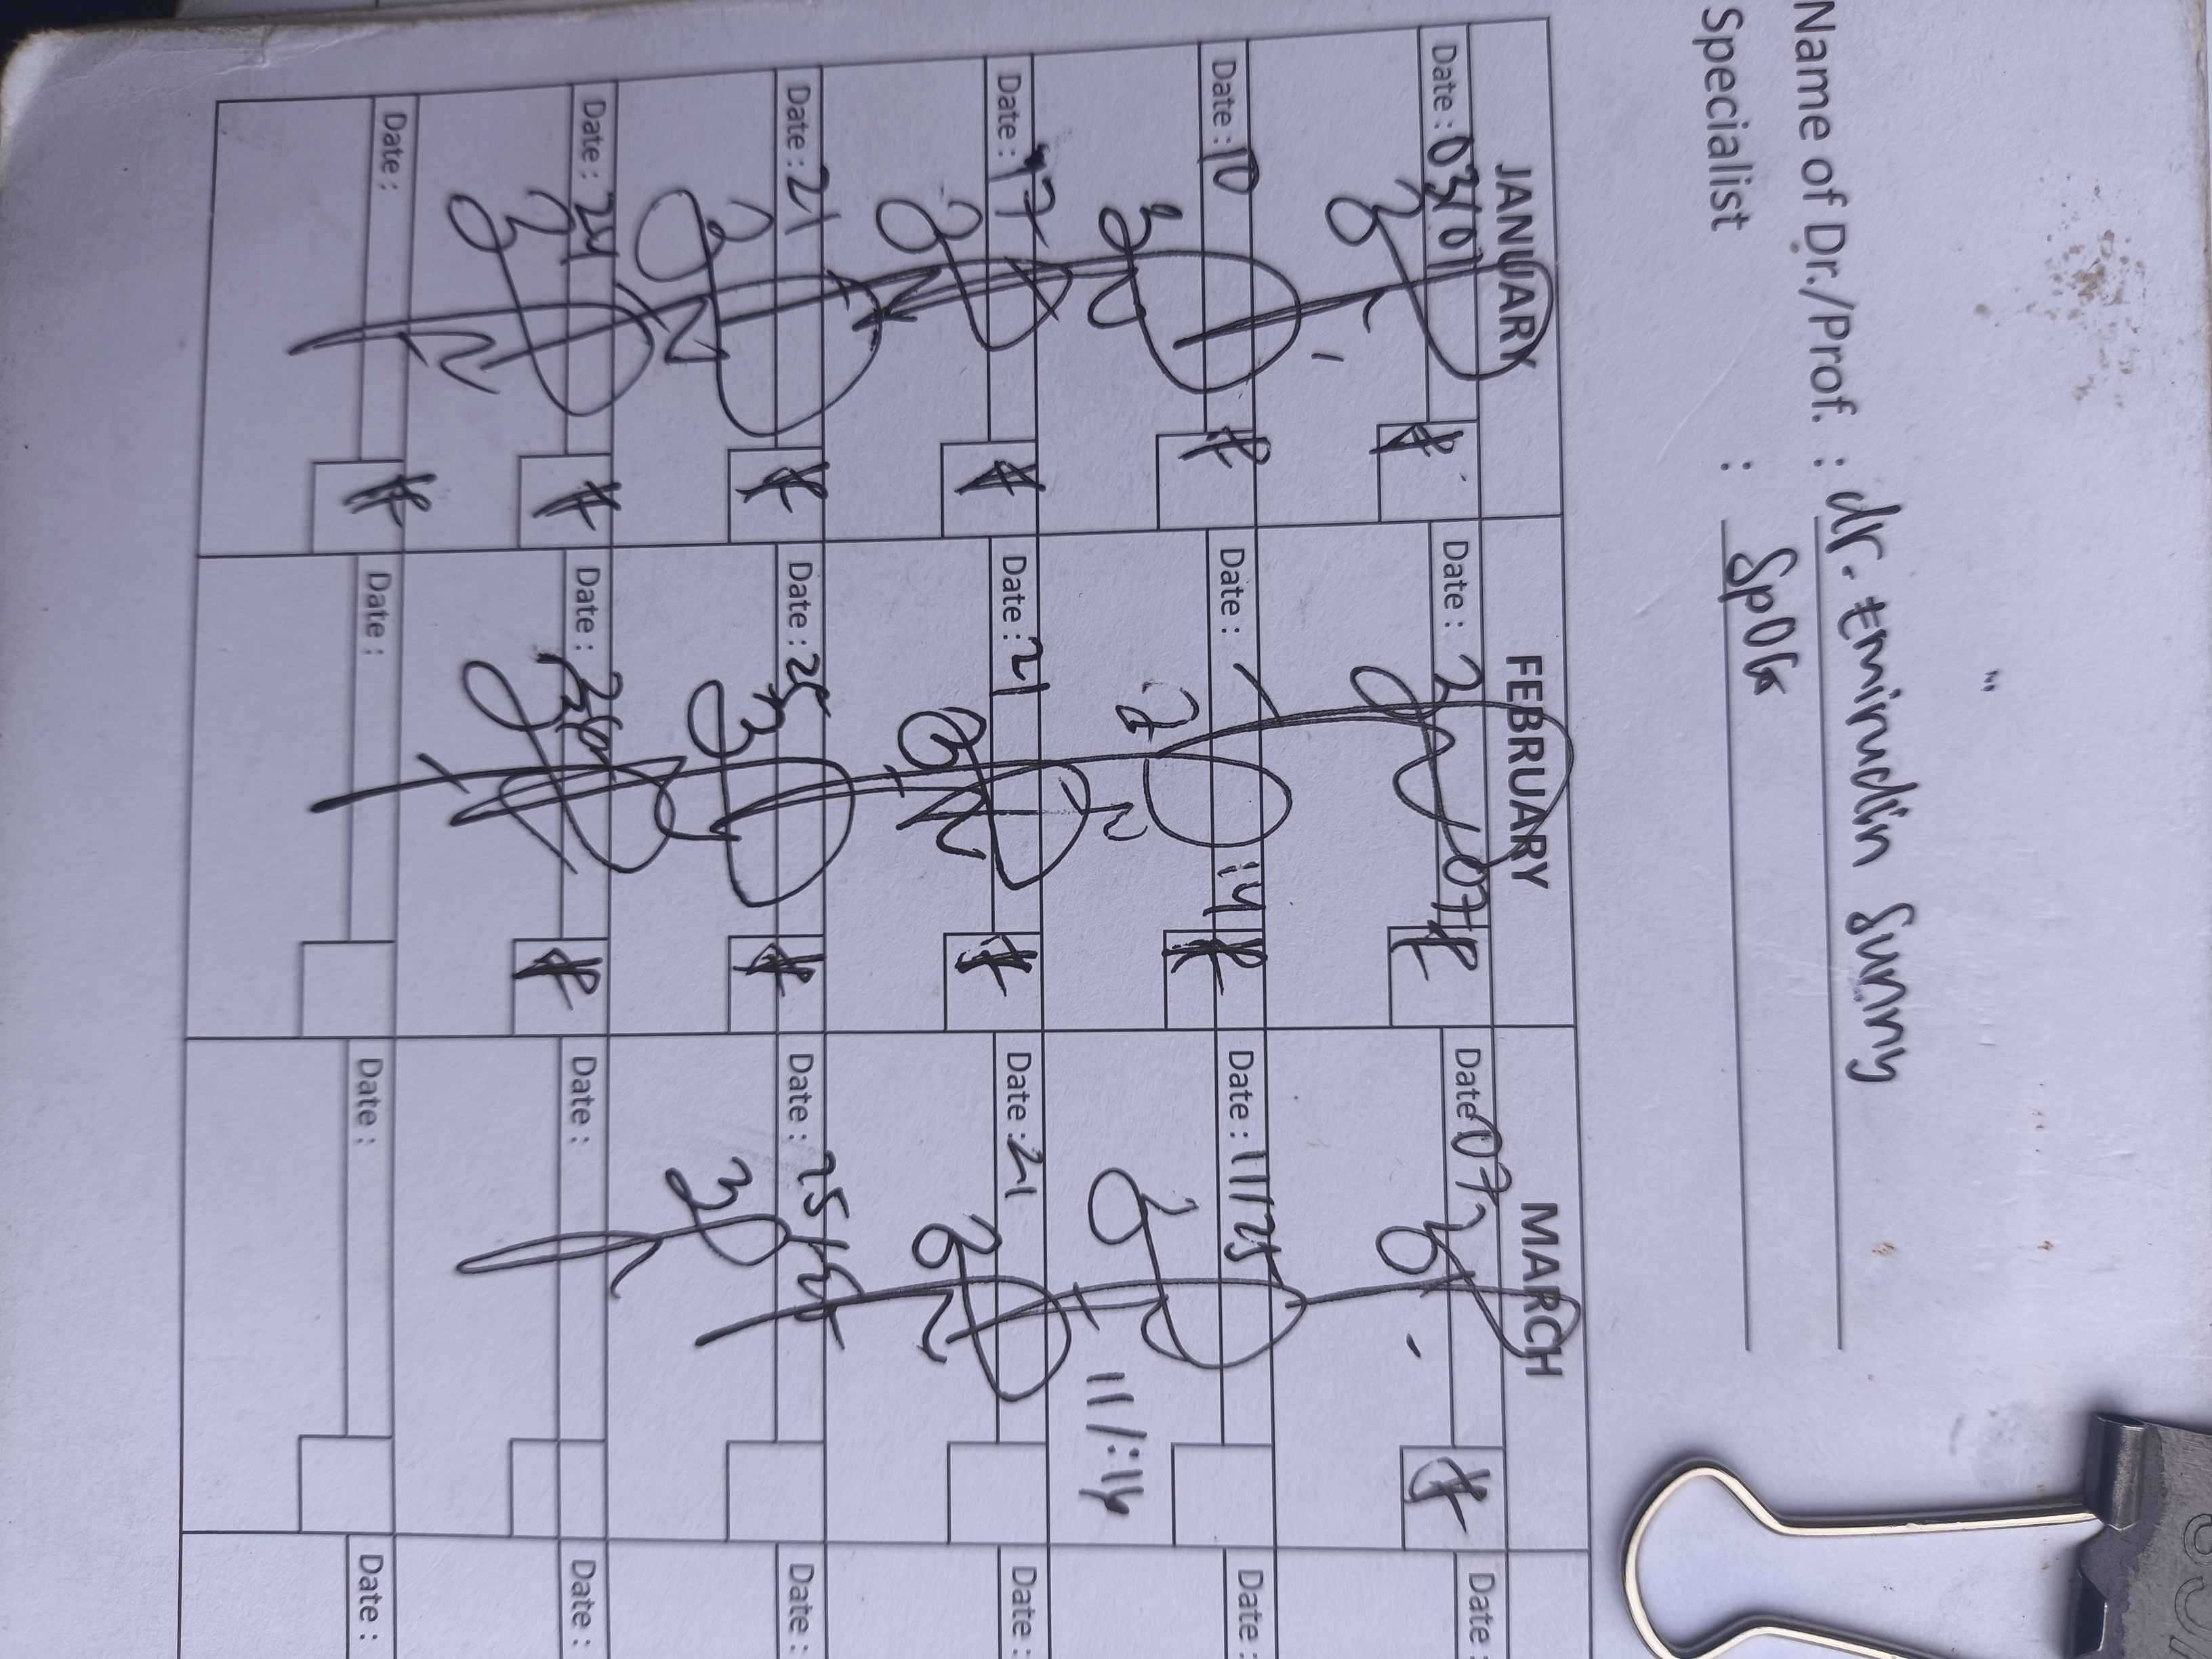 Name of Dr./Prof. : dr. Eminudin Sunny
Specialist : SpOG
JANUARY FEBRUARY MARCH
Date : 03/01 Date : 2 07 Date 07 Date :
Date : 10 Date : 14 Date : 11/25 Date :
11/
Date : 17 Date : 21 Date : 21 Date :
Date : 21 Date : 25 Date : 25/ Date :
Date : 24 Date : 28 Date : Date :
Date : Date : Date : Date :